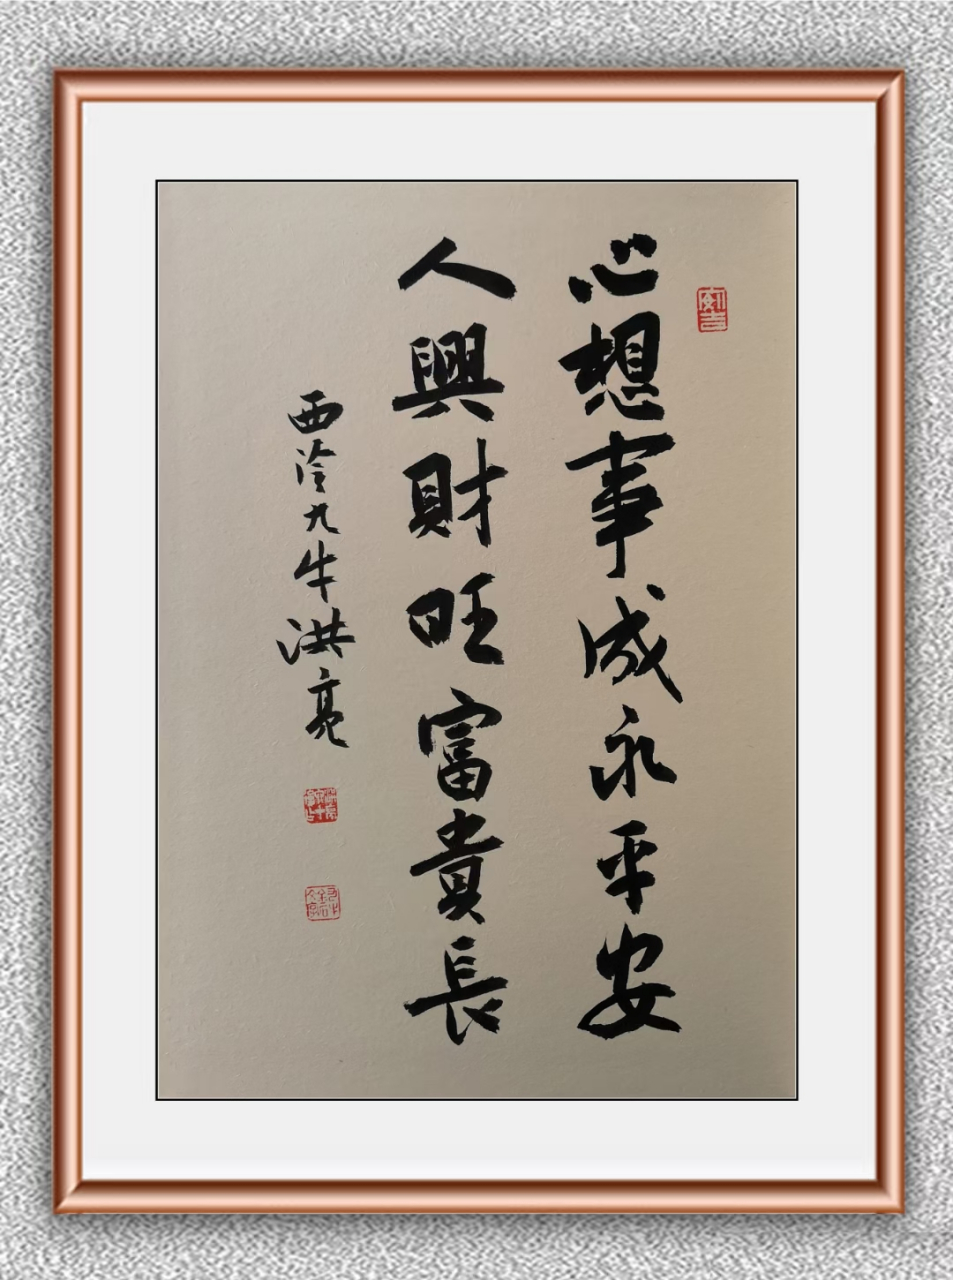 心想事成永平安
人興財旺富貴長
西泠九牛洪亮